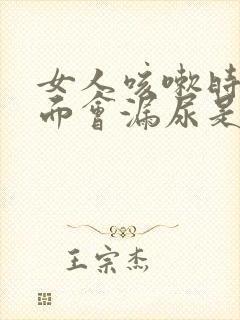 女人咳嗽時
而會漏尿是
王宗杰